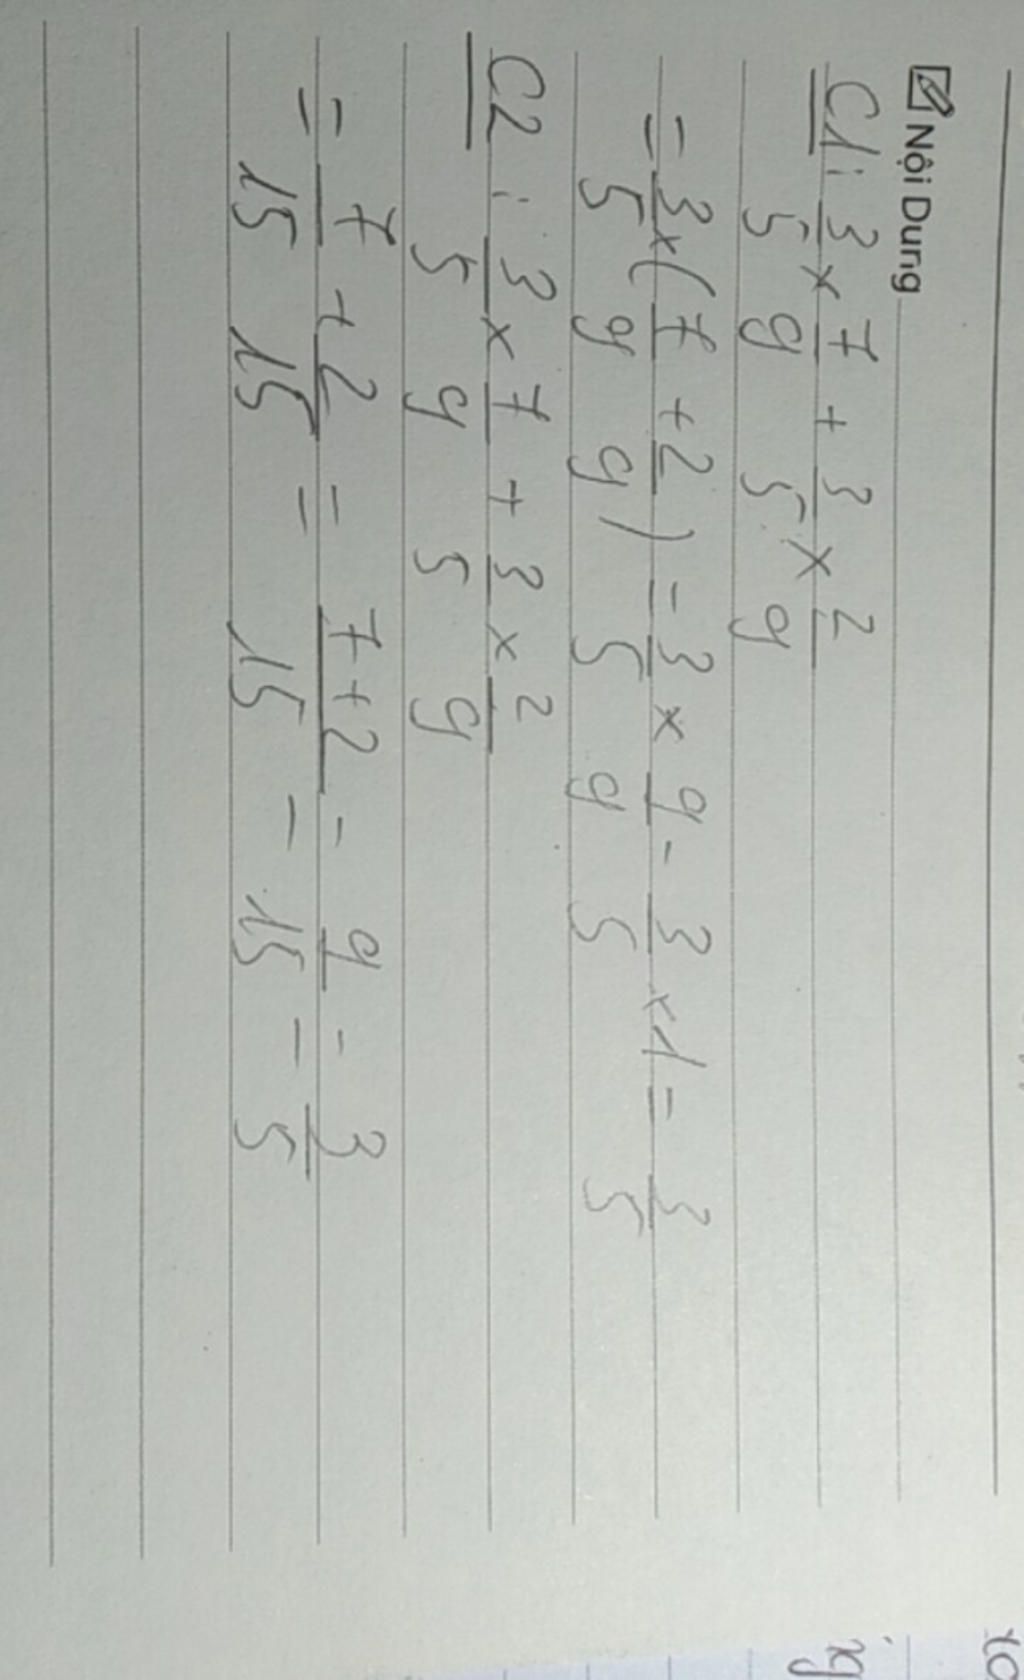 Nội Dung
C1: 3/5 x 7/9 + 3/5 x 2/9
= 3/5 x ( 7/9 + 2/9 ) = 3/5 x 9/9 = 3/5 x 1 = 3/5
C2 : 3/5 x 7/9 + 3/5 x 2/9
= 7/15 + 2/15 = 7+2/15 = 9/15 = 3/5